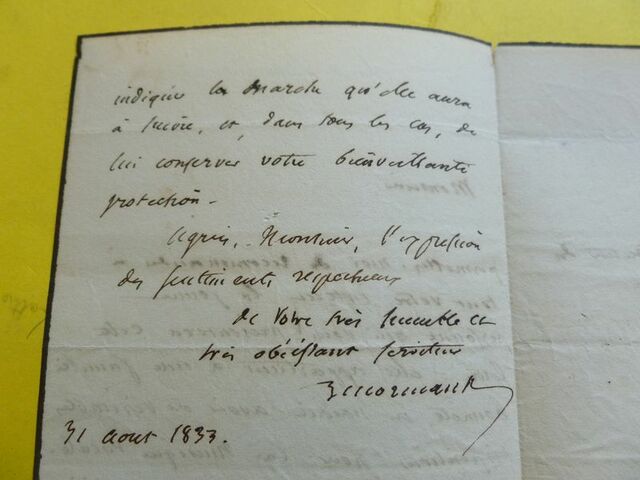 indiquer la marche qu'elle aura
à suivre, et, dans tous les cas, de
lui conserver votre bienveillante
protection.
Agréez, Monsieur, l'expression
des sentiments respectueux
de Votre très humble et
très obéissant serviteur
31 aout 1833.
Monsieur